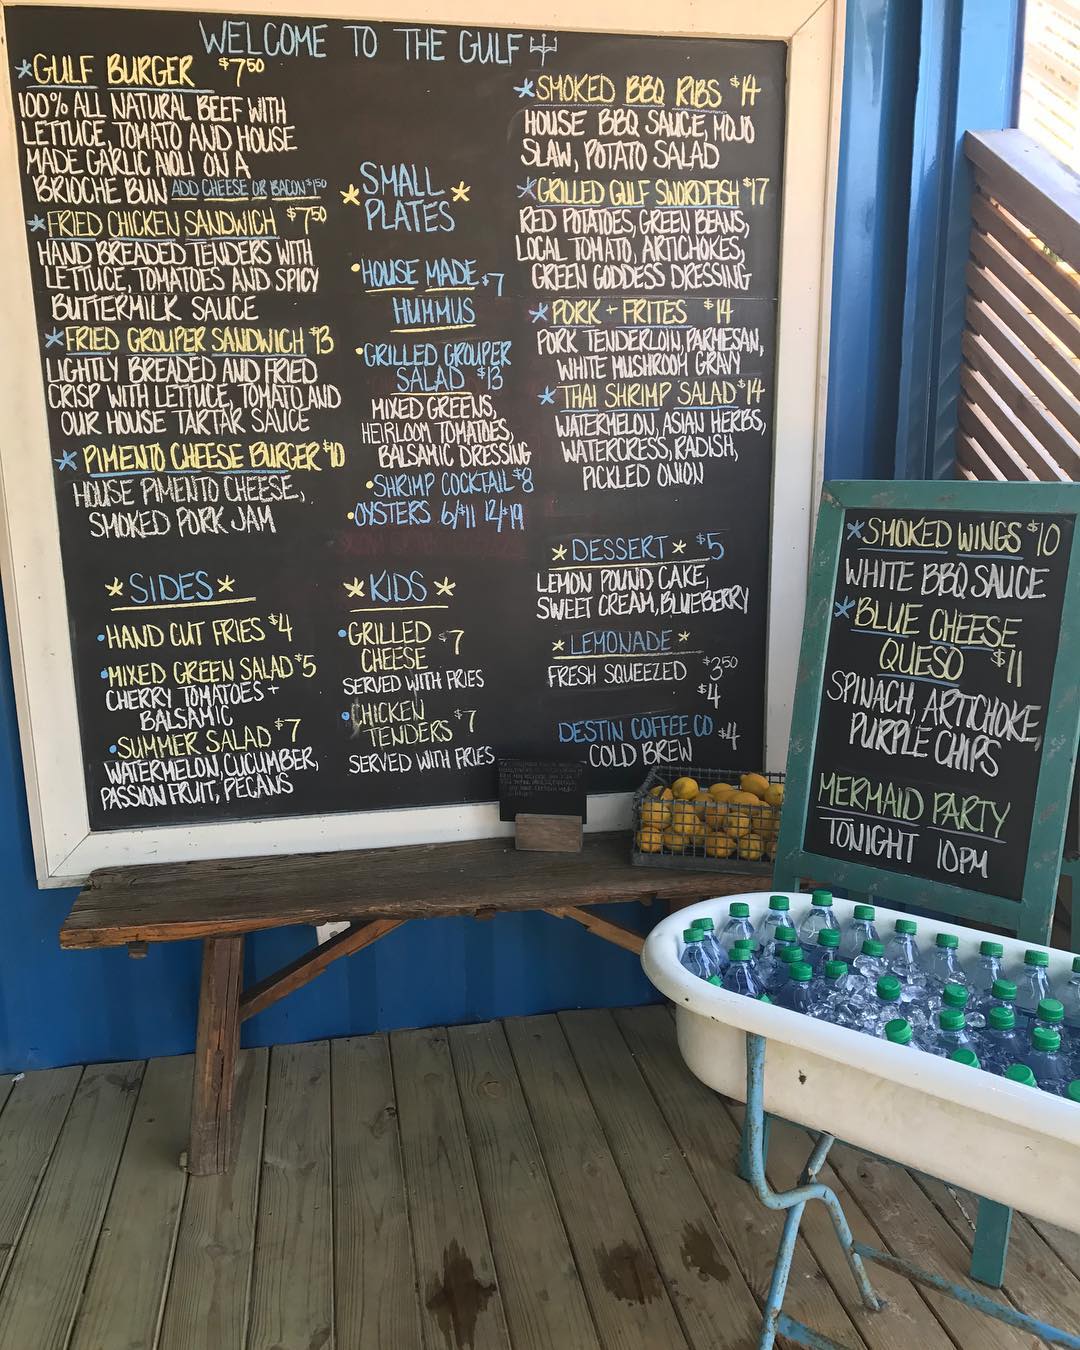 WELCOME TO THE GULF
*GULF BURGER $7.50
100% ALL NATURAL BEEF WITH
LETTUCE, TOMATO AND HOUSE
MADE GARLIC AIOLI ON A
BRIOCHE BUN ADD CHEESE OR BACON $1.50
*FRIED CHICKEN SANDWICH $7.50
HAND BREADED TENDERS WITH
LETTUCE, TOMATOES AND SPICY
BUTTERMILK SAUCE
*FRIED GROUPER SANDWICH $13
LIGHTLY BREADED AND FRIED
CRISP WITH LETTUCE, TOMATO AND
OUR HOUSE TARTAR SAUCE
*PIMENTO CHEESE BURGER $10
HOUSE PIMENTO CHEESE,
SMOKED PORK JAM
*SIDES*
•HAND CUT FRIES $4
•MIXED GREEN SALAD $5
CHERRY TOMATOES +
BALSAMIC
•SUMMER SALAD $7
WATERMELON, CUCUMBER,
PASSION FRUIT, PECANS
*SMALL
PLATES*
•HOUSE MADE $7
HUMMUS
•GRILLED GROUPER
SALAD $13
MIXED GREENS,
HEIRLOOM TOMATOES,
BALSAMIC DRESSING
•SHRIMP COCKTAIL $8
•OYSTERS 6/$11 12/$19
*KIDS*
•GRILLED $7
CHEESE
SERVED WITH FRIES
•CHICKEN $7
TENDERS
SERVED WITH FRIES
*SMOKED BBQ RIBS $14
HOUSE BBQ SAUCE, MOJO
SLAW, POTATO SALAD
*GRILLED GULF SWORDFISH $17
RED POTATOES, GREEN BEANS,
LOCAL TOMATO, ARTICHOKES,
GREEN GODDESS DRESSING
*PORK + FRITES $14
PORK TENDERLOIN, PARMESAN,
WHITE MUSHROOM GRAVY
*THAI SHRIMP SALAD $14
WATERMELON, ASIAN HERBS,
WATERCRESS, RADISH,
PICKLED ONION
*DESSERT* $5
LEMON POUND CAKE,
SWEET CREAM, BLUEBERRY
*LEMONADE*
FRESH SQUEEZED $3.50
$4
DESTIN COFFEE CO $4
COLD BREW
*SMOKED WINGS $10
WHITE BBQ SAUCE
*BLUE CHEESE
QUESO $11
SPINACH, ARTICHOKE,
PURPLE CHIPS
MERMAID PARTY
TONIGHT 10PM